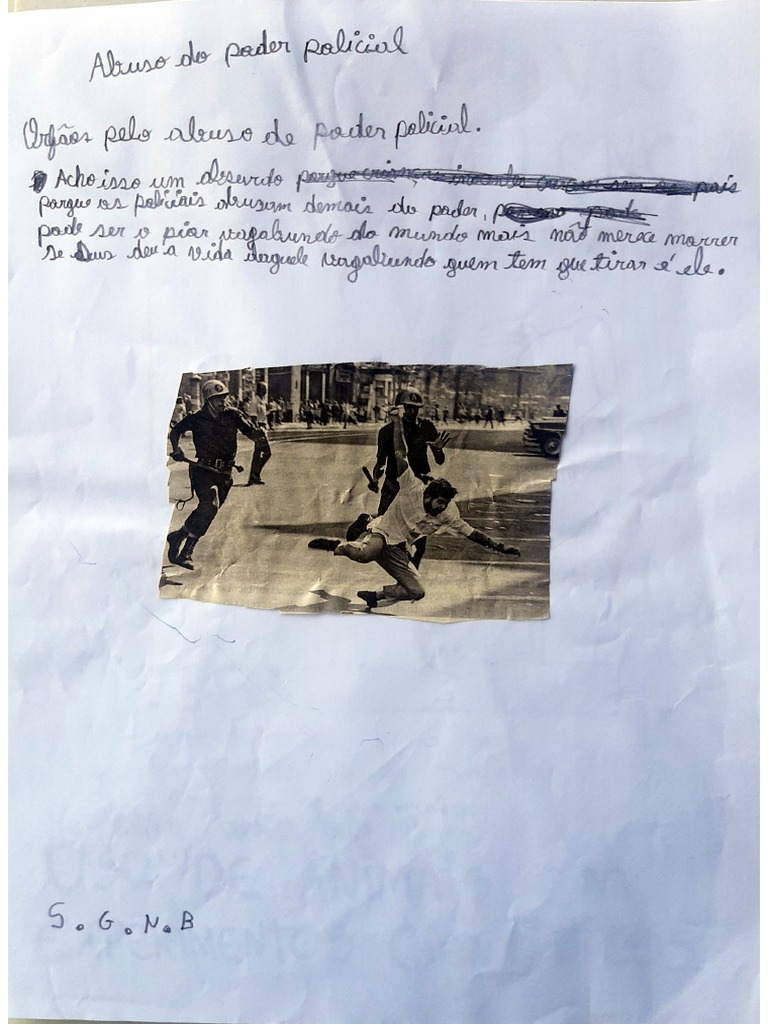 Abuso do poder policial
Orfãos pelo abuso de poder policial.
Acho isso um absurdo porque crianças inocentes sem os pais
porque os policiais abusam demais do poder,
pode ser o pior vagabundo do mundo mais não merece morrer
se Deus deu a vida daquele vagabundo quem tem que tirar é ele.
S.G.N.B